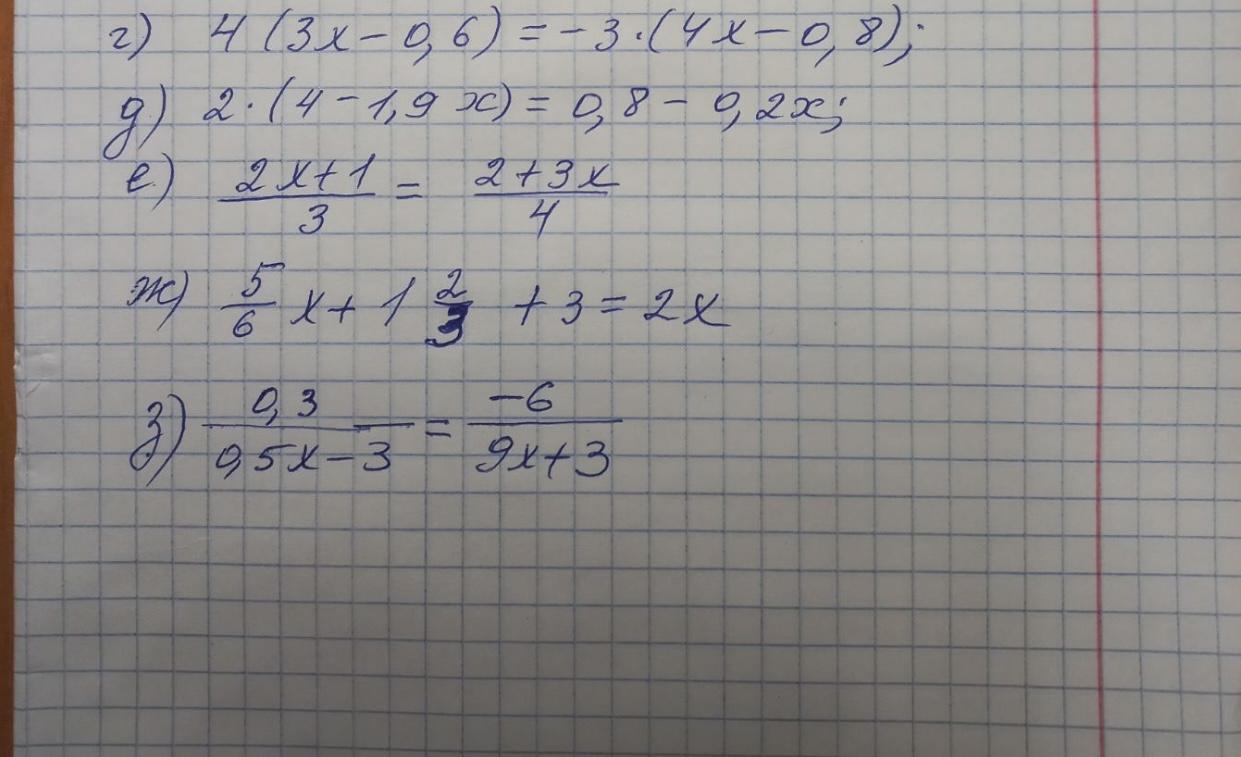 г) 4 (3x - 0,6) = -3·(4x - 0,8);
д) 2·(4 - 1,9x) = 0,8 - 0,2x;
е) (2x+1)/3 = (2+3x)/4
ж) 5/6 x + 1 2/3 + 3 = 2x
з) 0,3/(0,5x-3) = -6/(9x+3)